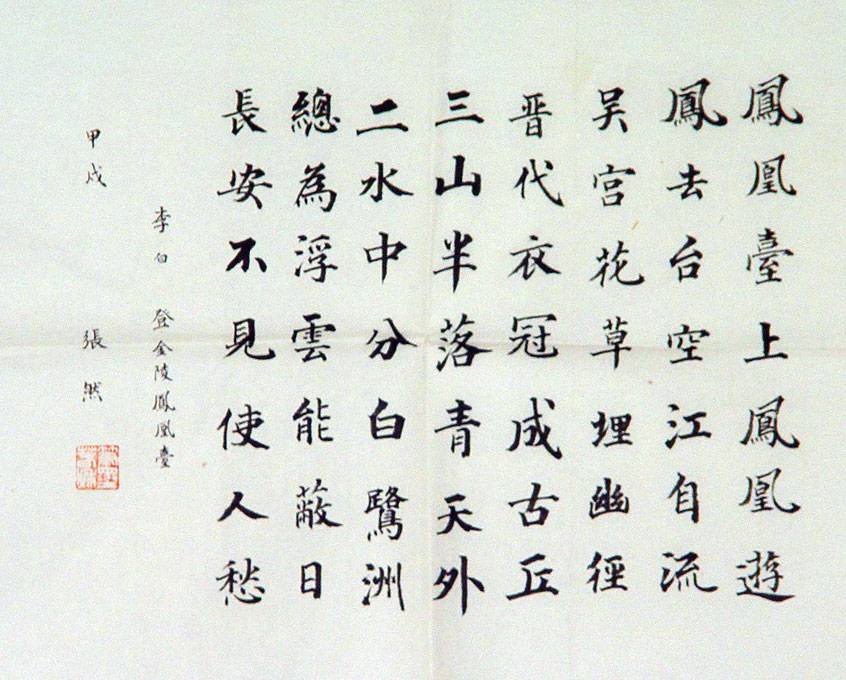 鳳凰臺上鳳凰遊
鳳去台空江自流
吴宫花草埋幽徑
晋代衣冠成古丘
三山半落青天外
二水中分白鷺洲
總為浮雲能蔽日
長安不見使人愁
李白 登金陵鳳凰臺
甲戌 張然